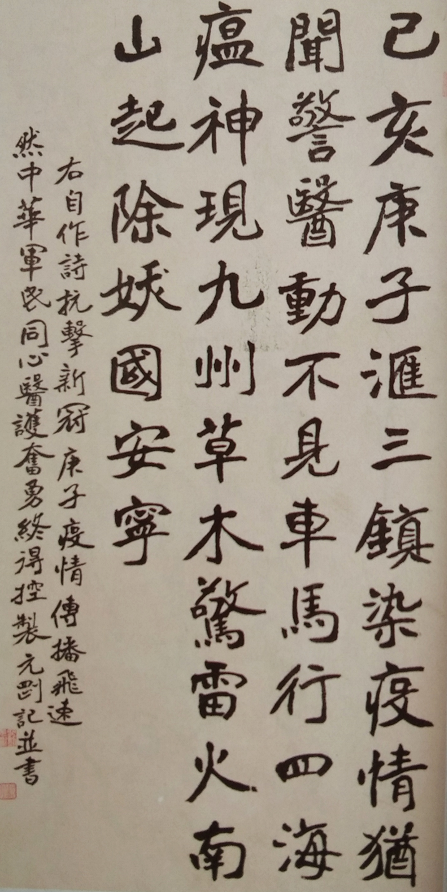 己亥庚子滙三鎮染疫情猶
聞警醫動不見車馬行四海
瘟神現九州草木驚雷火南
山起除妖國安寧
右自作詩抗擊新冠庚子疫情傳播飛速
然中華軍民同心醫護奮勇終得控製元剛記並書